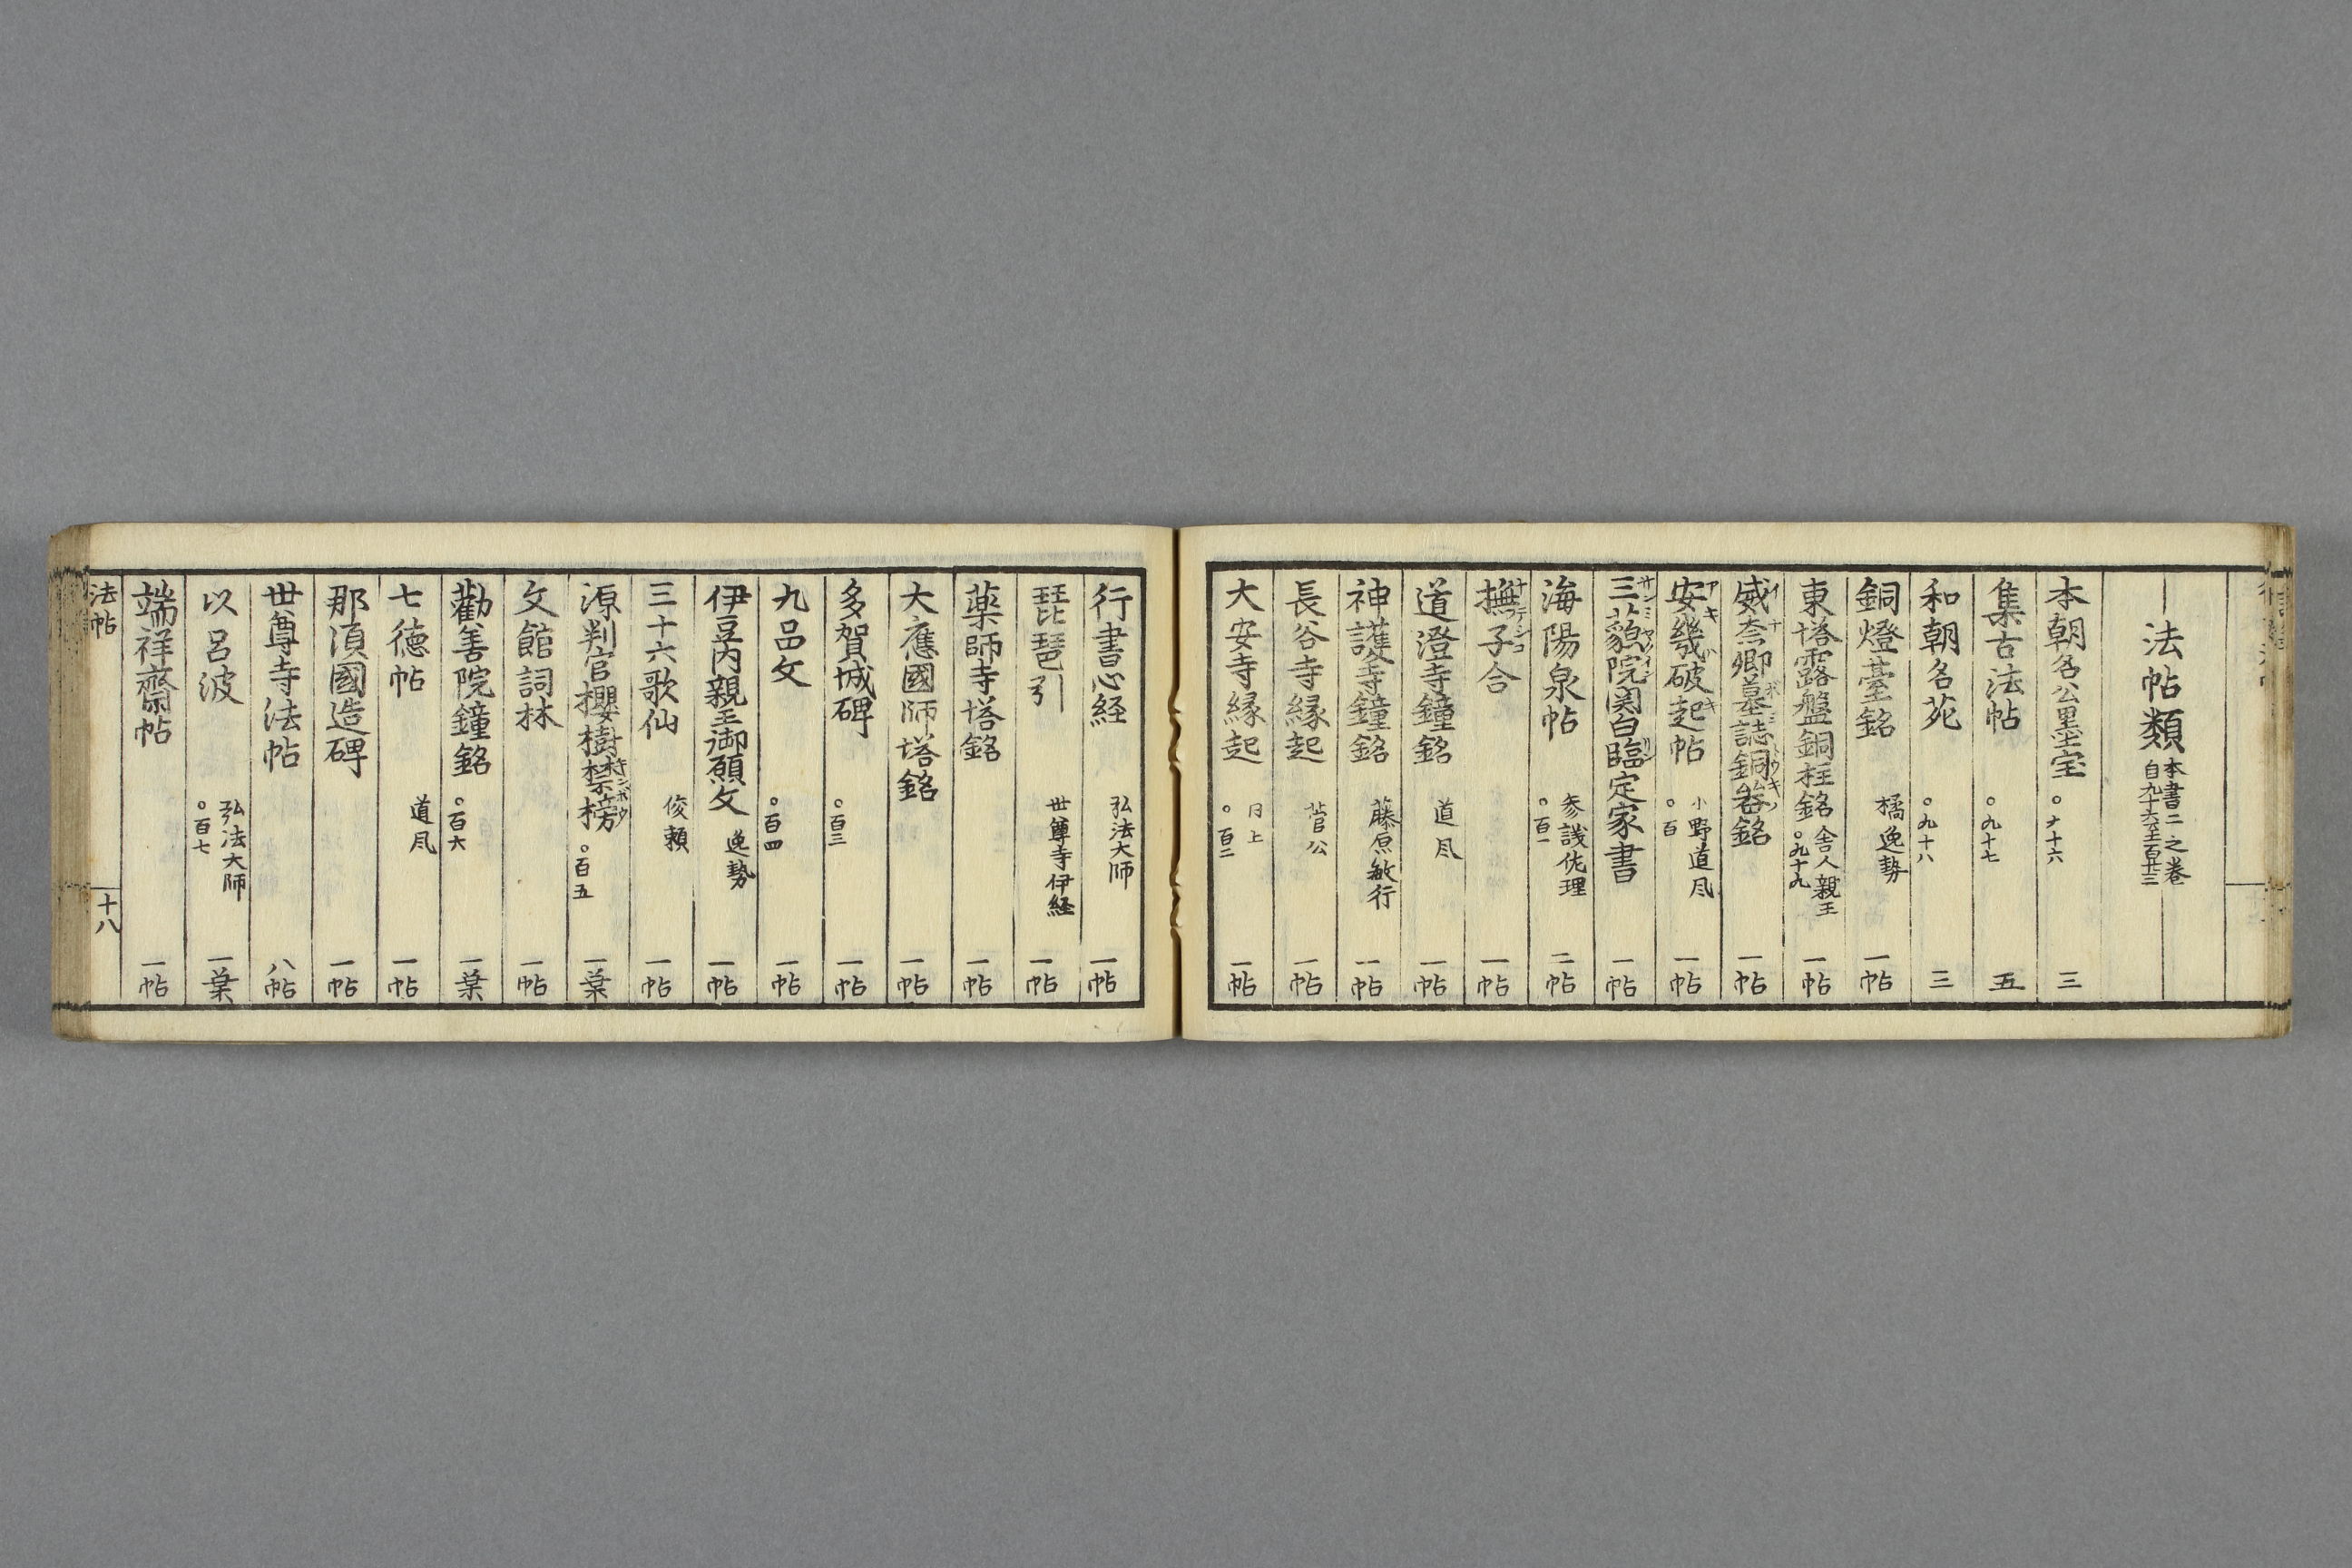 法帖類 本書二之巻
自九十六至百十三
本朝名公墨宝 ○九十六 三
集古法帖 ○九十七 五
和朝名苑 ○九十八 三
銅燈臺銘 橘逸勢 一帖
東塔露盤銅柱銘 舎人親王 ○九十九 一帖
威奈卿墓誌銅器銘 一帖
安幾破起帖 小野道風 ○百 一帖
三藐院関白臨定家書 一帖
海陽泉帖 参議佐理 ○百一 二帖
撫子合 一帖
道澄寺鐘銘 道風 一帖
神護寺鐘銘 藤原敏行 一帖
長谷寺縁起 菅公 一帖
大安寺縁起 同上 ○百二 一帖
行書心経 弘法大師 一帖
琵琶引 世尊寺伊経 一帖
薬師寺塔銘 一帖
大應國師塔銘 一帖
多賀城碑 ○百三 一帖
九品文 ○百四 一帖
伊豆内親王御願文 逸勢 一帖
三十六歌仙 俊頼 一帖
源判官櫻樹禁榜 ○百五 一葉
文館詞林 一帖
勸善院鐘銘 ○百六 一葉
七徳帖 道風 一帖
那須國造碑 一帖
世尊寺法帖 八帖
以呂波 弘法大師 ○百七 一葉
端祥齋帖 一帖
法帖 十八